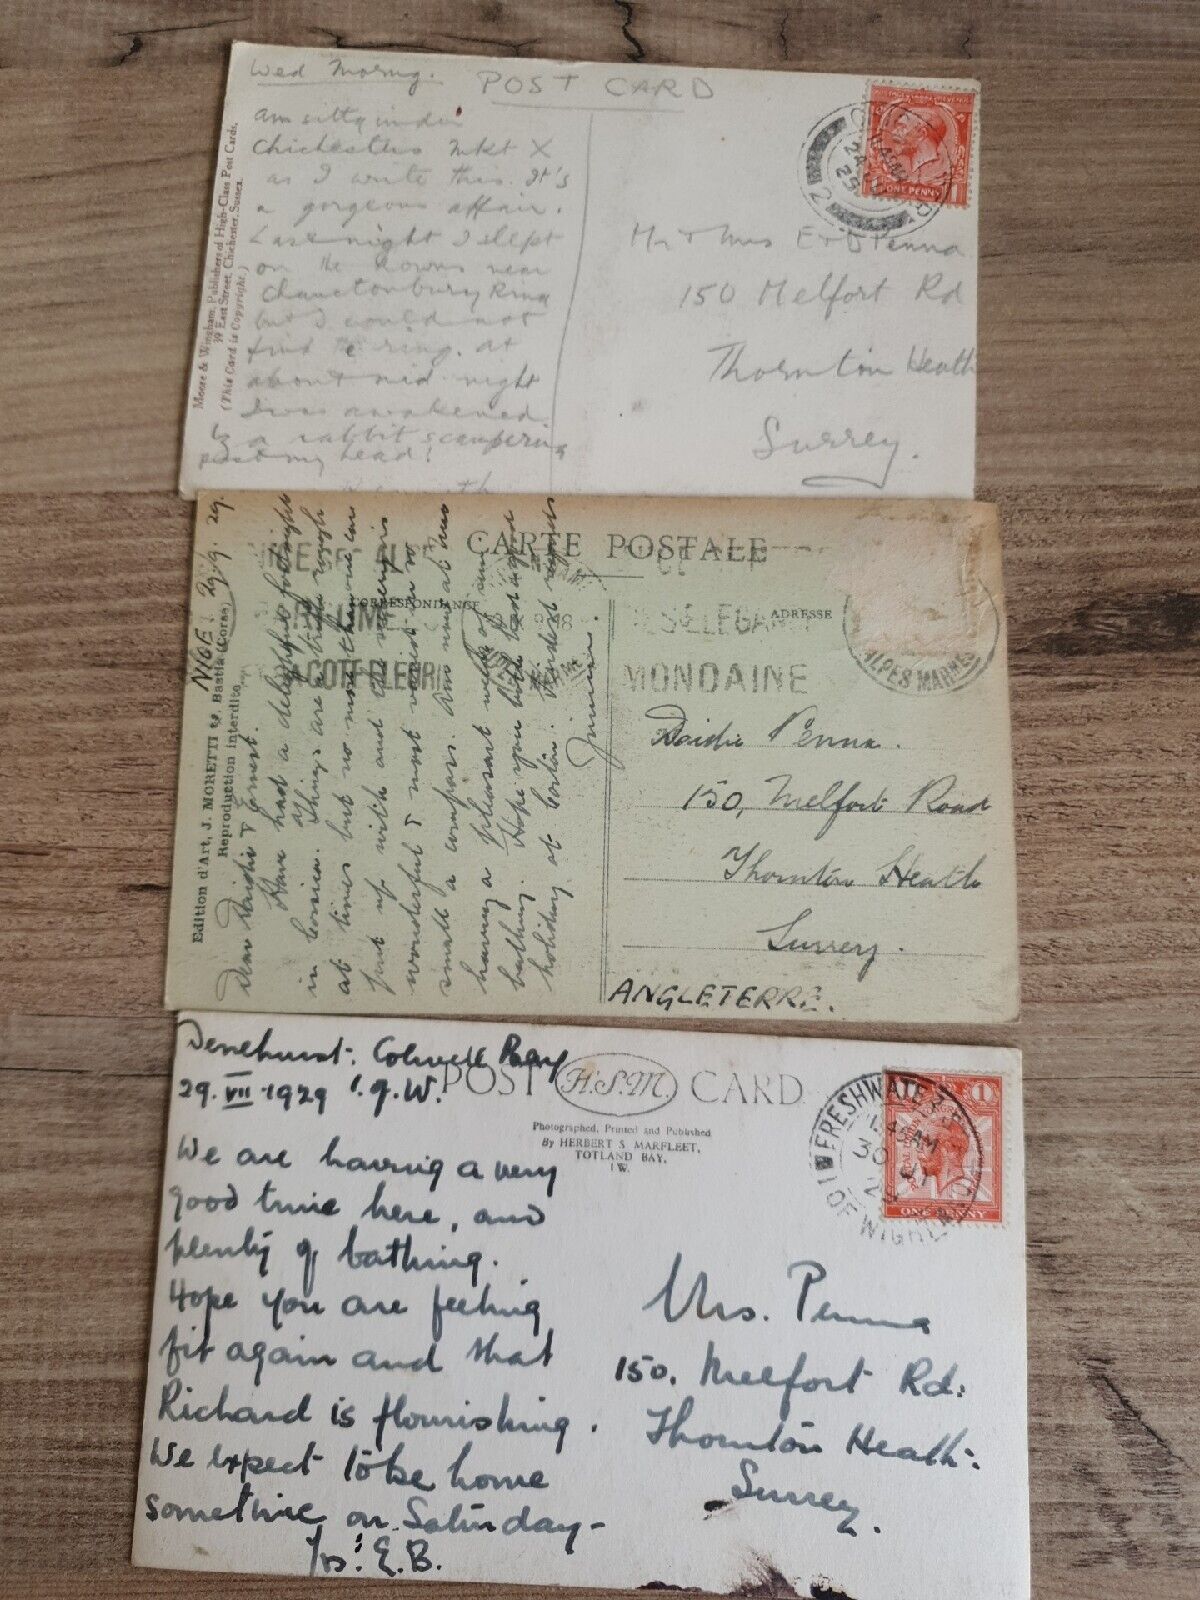 Wed Morng.
POST CARD
am sittg under
Chichesters Mkt X
as I write this. It's
a gorgeous affair.
Last night I slept
on the downs near
Chanctonbury Ring
but I could not
find the ring. at
about mid-night
I was awakened
by a rabbit scampering
past my head!
Moore & Wingham, Publishers of High-Class Post Cards,
39 East Street, Chichester, Sussex.
(This Card is Copyright.)
ONE PENNY
Mr & Mrs E & D Penna
150 Melfort Rd
Thornton Heath
Surrey.
CARTE POSTALE
CORRESPONDANCE
ADRESSE
Edition d'Art, J. MORETTI Bastia (Corse)
Reproduction interdite
NICE. 29.9.29.
Dear Daidie & Ernest.
Have had a delightful fortnight
in Corsica. Things are a trifle rough
at times but no more than one can
put up with and the scenery is
wonderful & most varied in so
small a compass. Am now at Nice
having a pleasant week of sun
bathing. Hope you both had a good
holiday at Corton. Kindest regards
ELEGANCE
MONDAINE
ALPES MARMES
Daidie Penna.
150, Melfort Road
Thornton Heath
Surrey.
ANGLETERRE.
Denehurst. Colwell Bay
29.VII.1929 I.of W.
POST H.S.M. CARD
Photographed, Printed and Published
By HERBERT S MARFLEET,
TOTLAND BAY,
I.W.
FRESHWATER
11.45AM
30 JY
29
I OF WIGHT
1
ONE PENNY
We are having a very
good time here, and
plenty of bathing.
Hope you are feeling
fit again and that
Richard is flourishing.
We expect to be home
sometime on Saturday-
Yrs: E.B.
Mrs. Penna
150, Melfort Rd:
Thornton Heath:
Surrey.